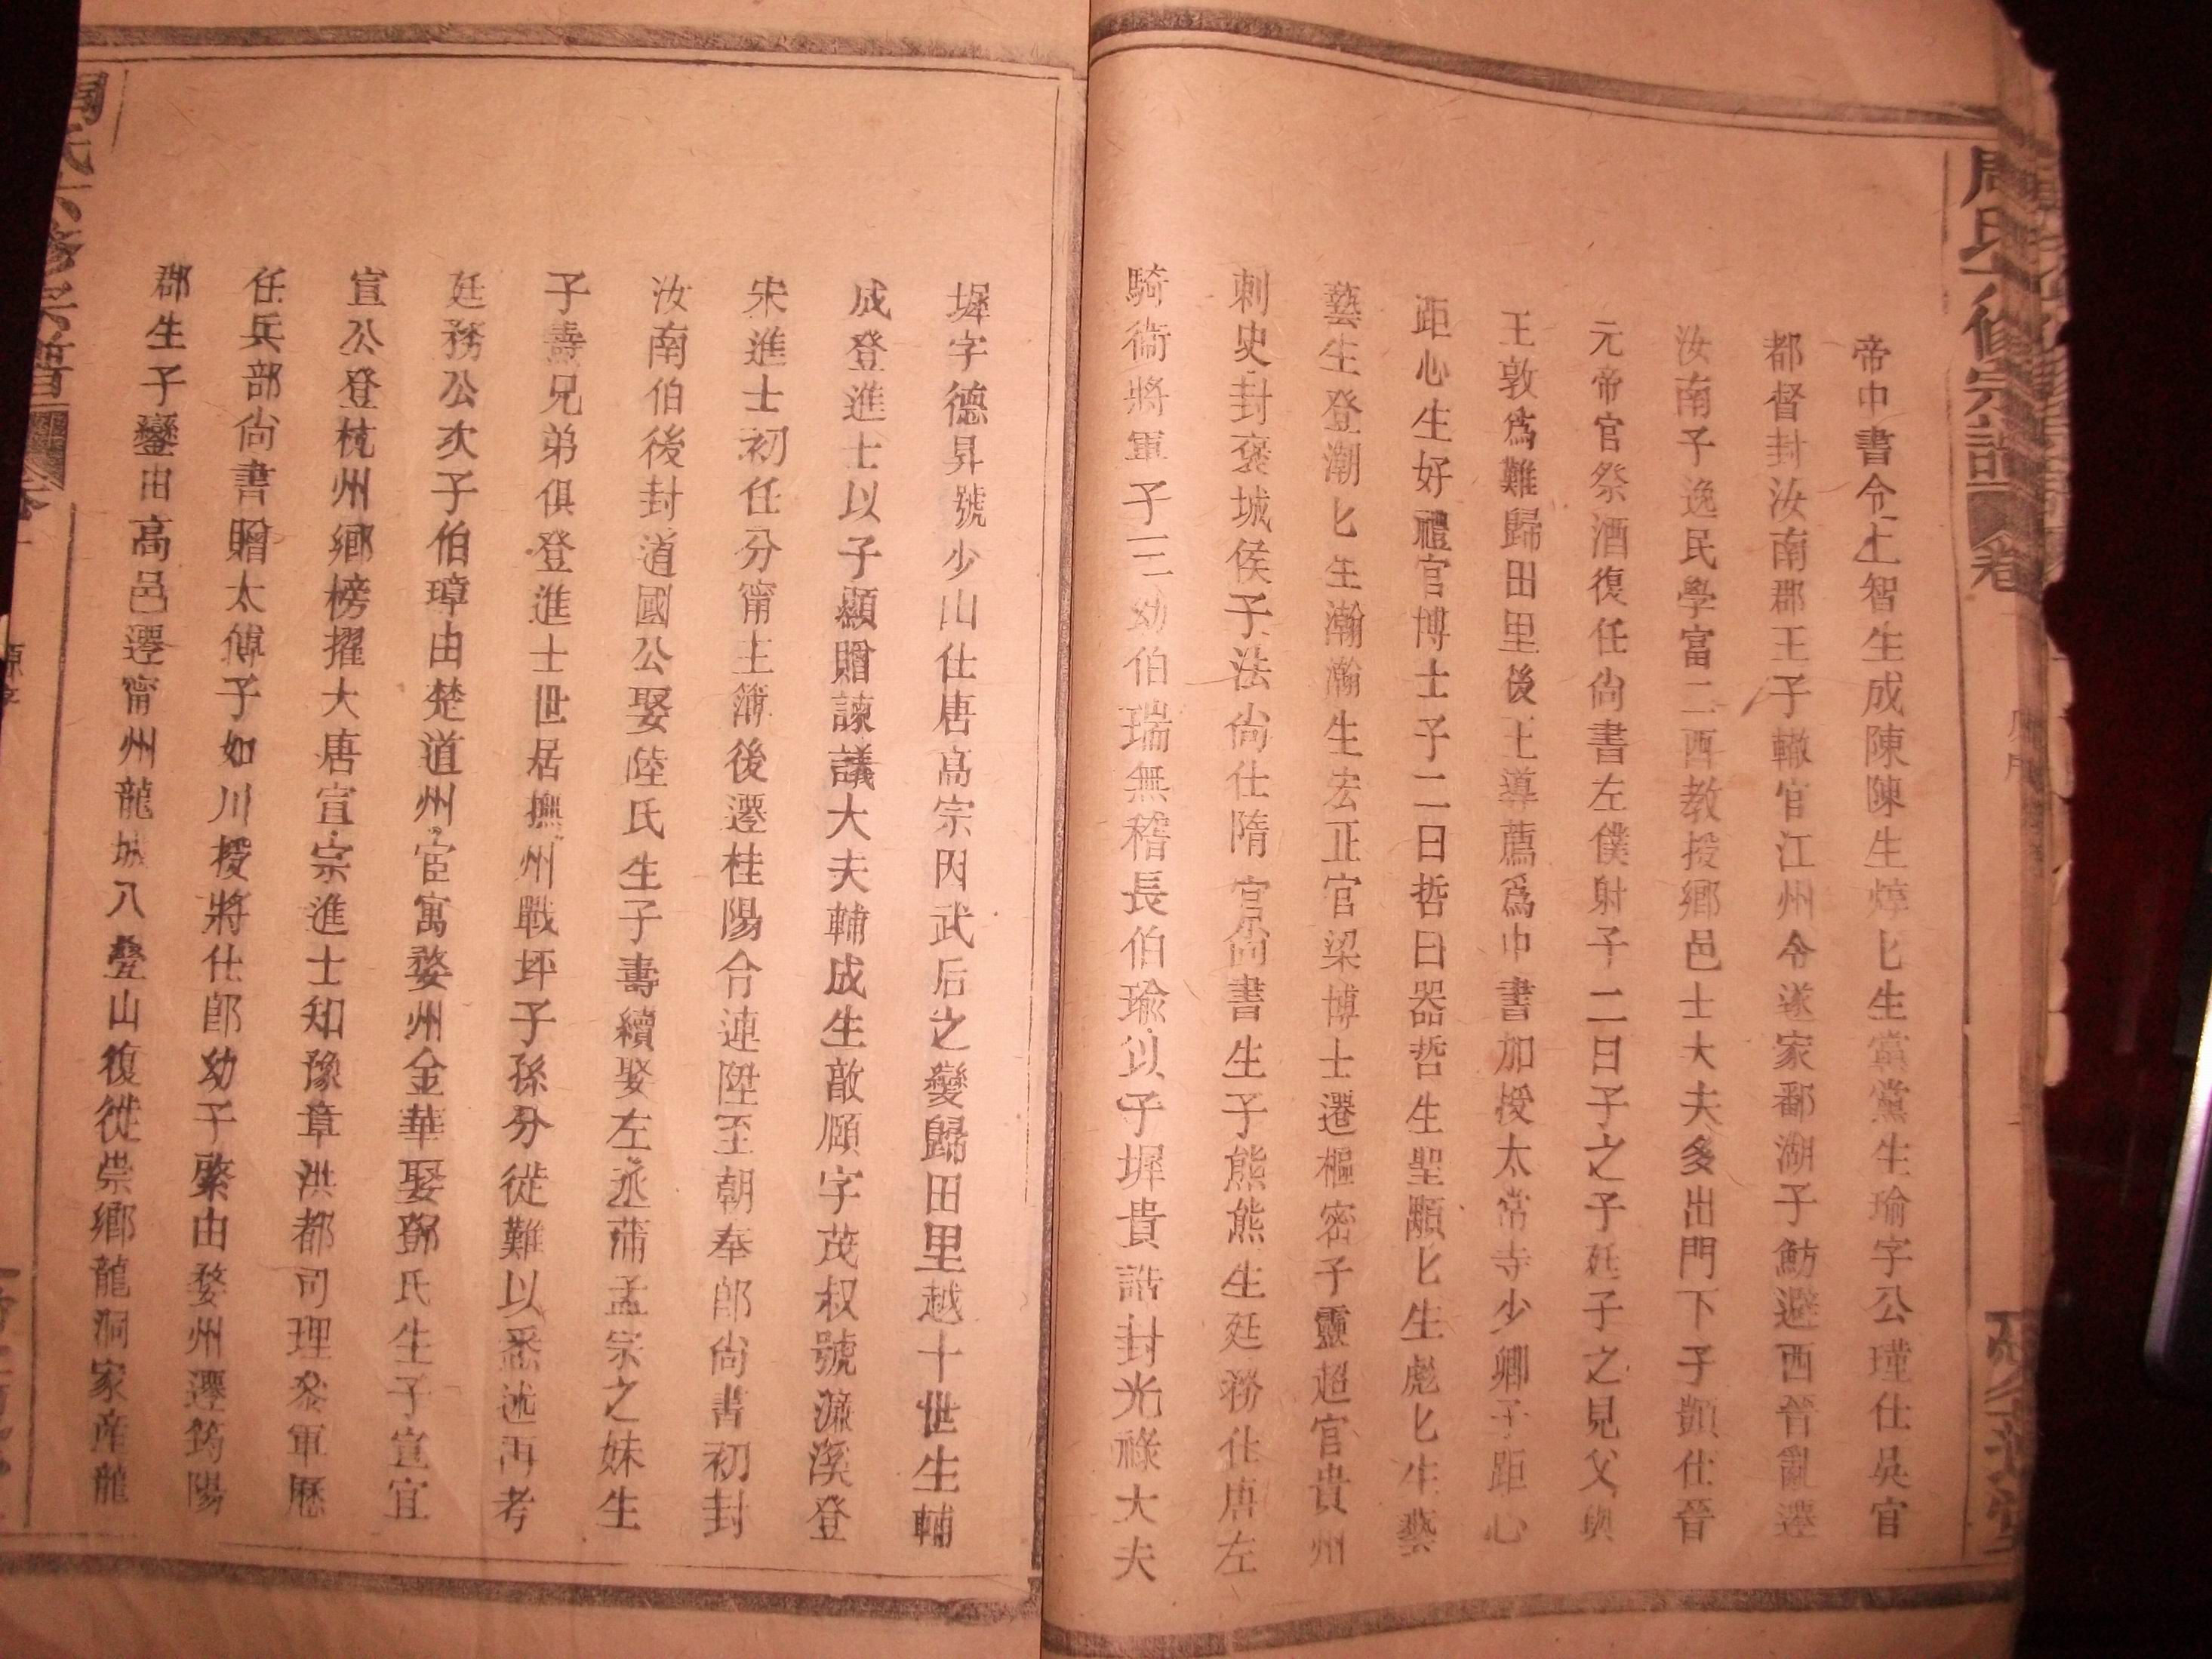 周氏六修宗譜 卷
帝中書令上智生成陳陳生燁匕生黨黨生瑜字公瑾仕吳官
都督封汝南郡王子轍官江州令遂家鄱湖子魴避西晉亂遷
汝南子逸民學富二酉教授鄉邑士大夫多出門下子顗仕晉
元帝官祭酒復任尙書左僕射子二曰子之子廷子之見父與
王敦爲難歸田里後王導薦爲中書加授太常寺少卿子距心
距心生好禮官博士子二曰哲曰器哲生聖顒匕生彪匕生藝
藝生登潮匕生瀚瀚生宏正官梁博士遷樞密子靈超官貴州
刺史封褒城侯子法尙仕隋官尙書生子熊熊生廷務仕唐左
騎衞將軍子三幼伯瑞無稽長伯瑜以子墀貴誥封光祿大夫
墀字德昇號少山仕唐高宗因武后之變歸田里越十世生輔
成登進士以子顯贈諫議大夫輔成生敵頤字茂叔號濂溪登
宋進士初任分甯主簿後遷桂陽令連陞至朝奉郎尙書初封
汝南伯後封道國公娶陸氏生子壽續娶左丞蒲孟宗之妹生
子燾兄弟俱登進士世居撫州戰坪子孫分徙難以悉述再考
廷務公次子伯璋由楚道州宦寓婺州金華娶鄧氏生子宣宜
宣公登杭州鄉榜擢大唐宣宗進士知豫章洪都司理叅軍歷
任兵部尙書贈太傅子如川授將仕郎幼子綮由婺州遷筠陽
郡生子鑾由高邑遷甯州龍城八疊山復徙崇鄉龍洞家產龍
周氏六修宗譜 卷一